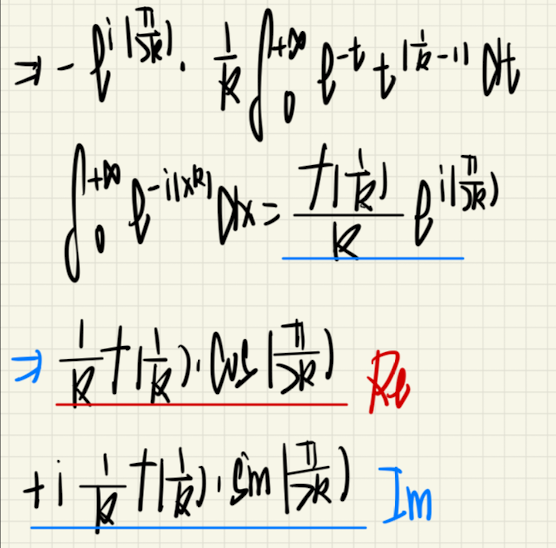 ⇒ - e^{i(π/2k)} · 1/k ∫_0^{+∞} e^{-t} t^{(1/k - 1)} dt
∫_0^{+∞} e^{-i(x^k)} dx = Γ(1/k)/k e^{i(π/2k)}
⇒ 1/k Γ(1/k) · cos(π/2k) Re
+ i 1/k Γ(1/k) · sin(π/2k) Im